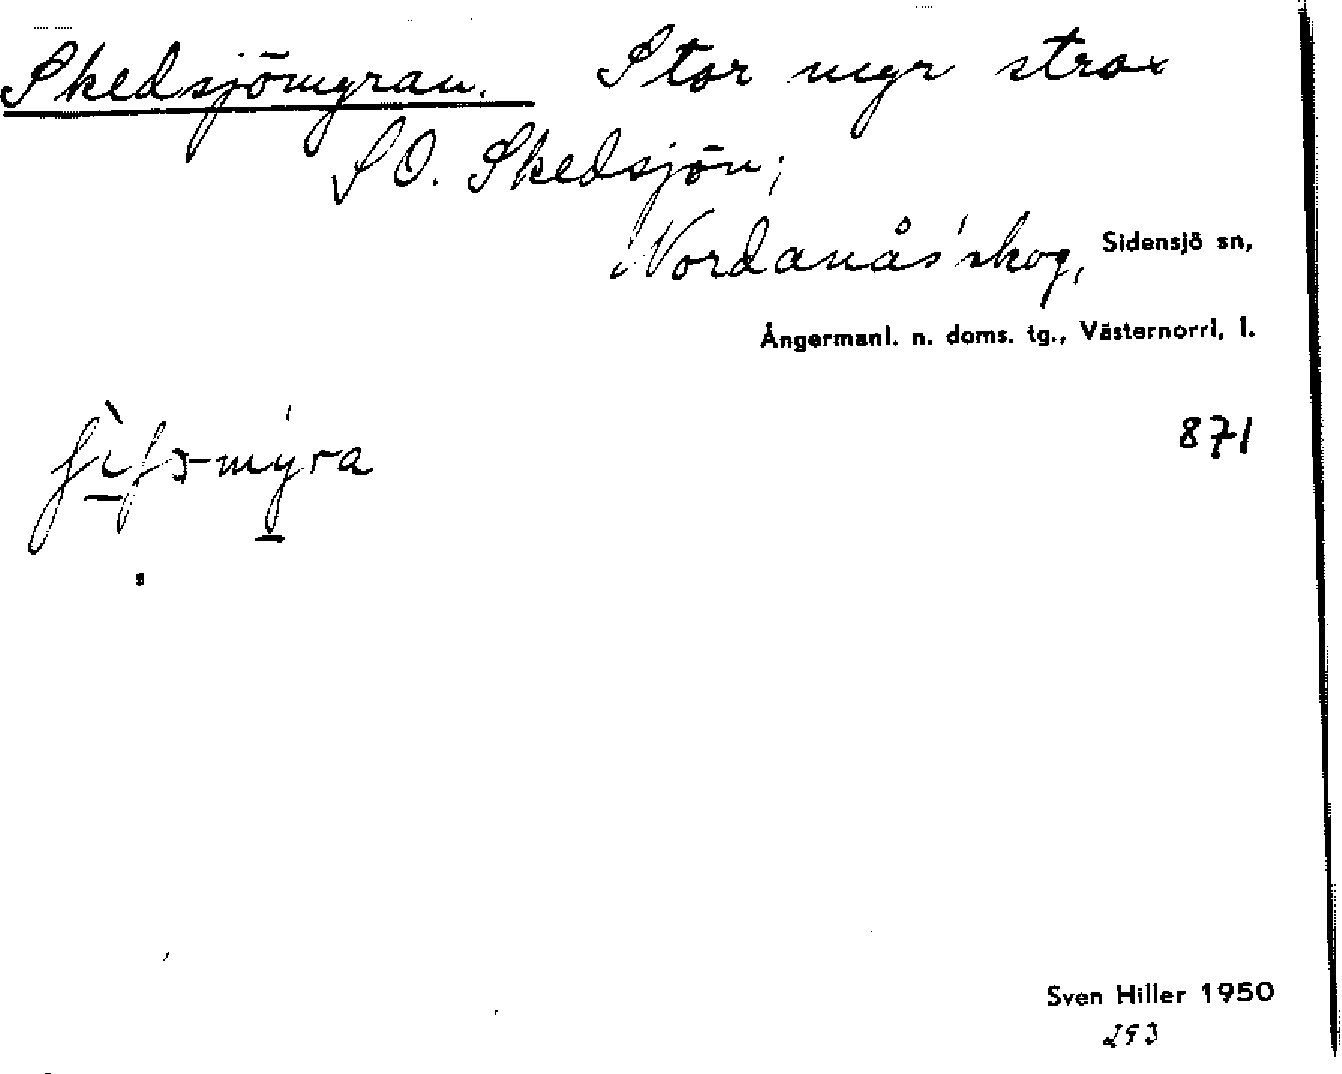 Skedsjömyran. Stor myr strax
SO. Skedsjön;
Nordanås' skog, Sidensjö sn,
Ångermanl. n. doms. tg., Västernorrl. l.
871
Sven Hiller 1950
293